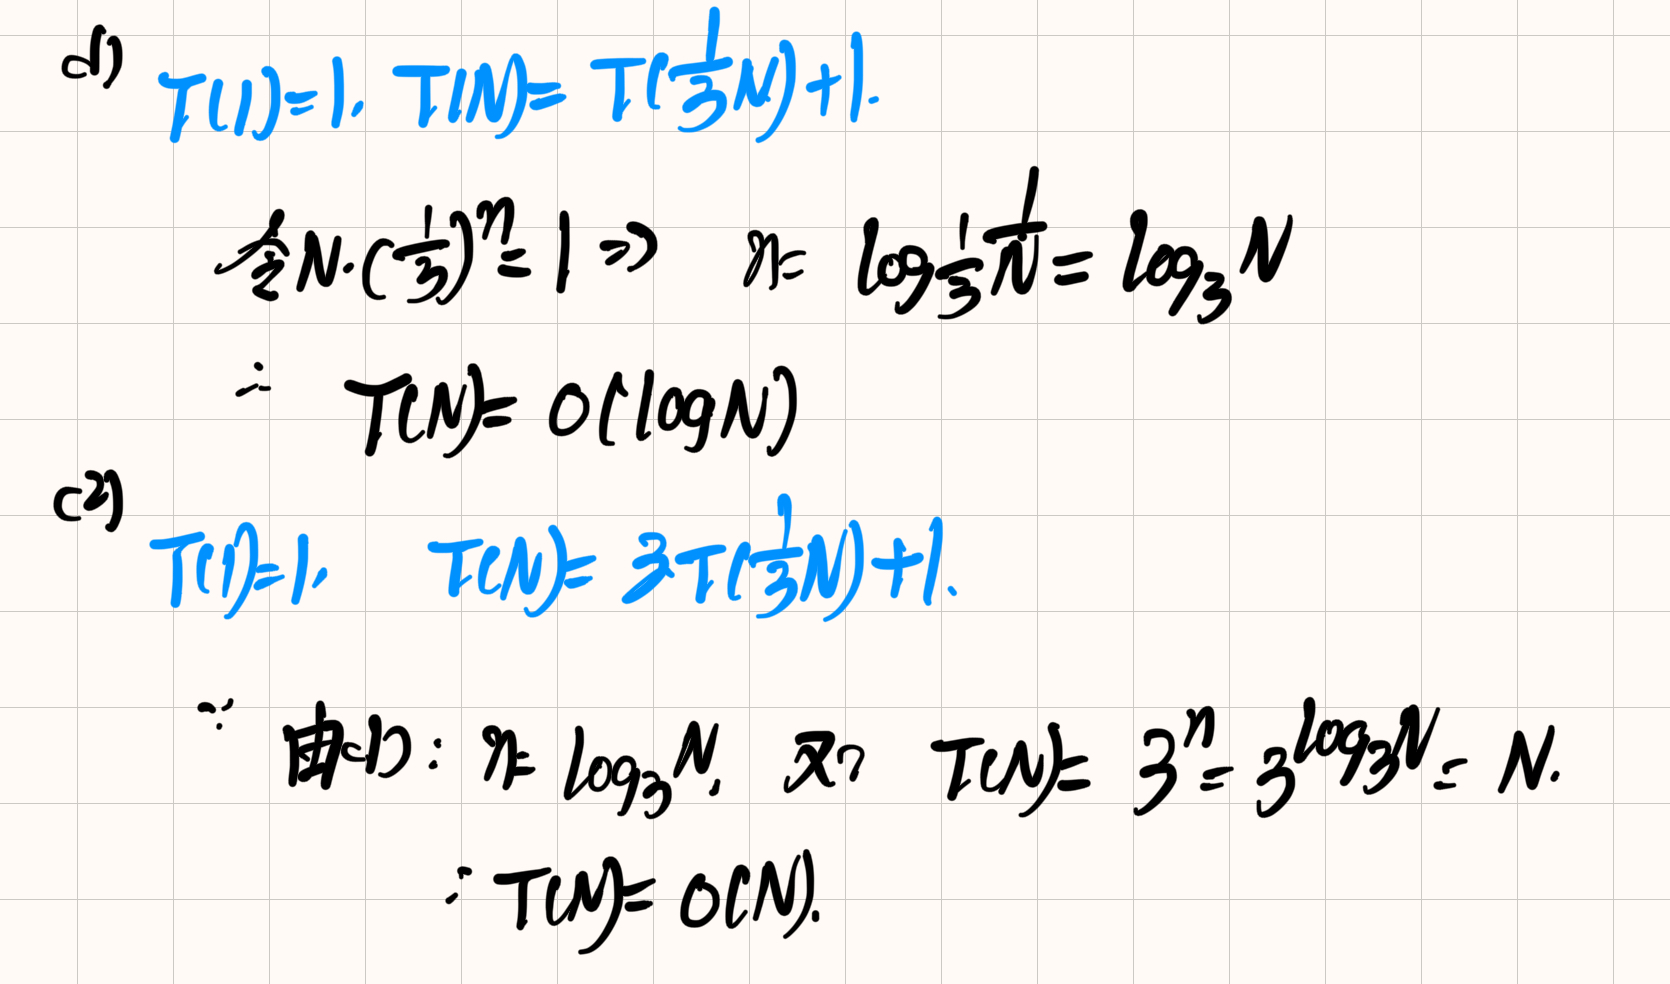 (1)
T(1)=1, T(N)= T(1/3 N)+1.
令 N·(1/3)^n = 1 ⇒ n= log_{1/3} 1/N = log_3 N
∴ T(N)= O(log N)
(2)
T(1)=1, T(N)= 3T(1/3 N)+1.
∵ 由(1): n= log_3 N, 又∵ T(N)= 3^n = 3^{log_3 N} = N.
∴ T(N)= O(N).